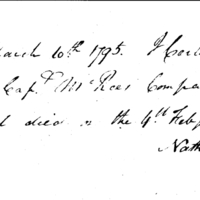 March 10th 1795. I Cer
Capt. McRees Compa
died on the 4th Feb
Nath